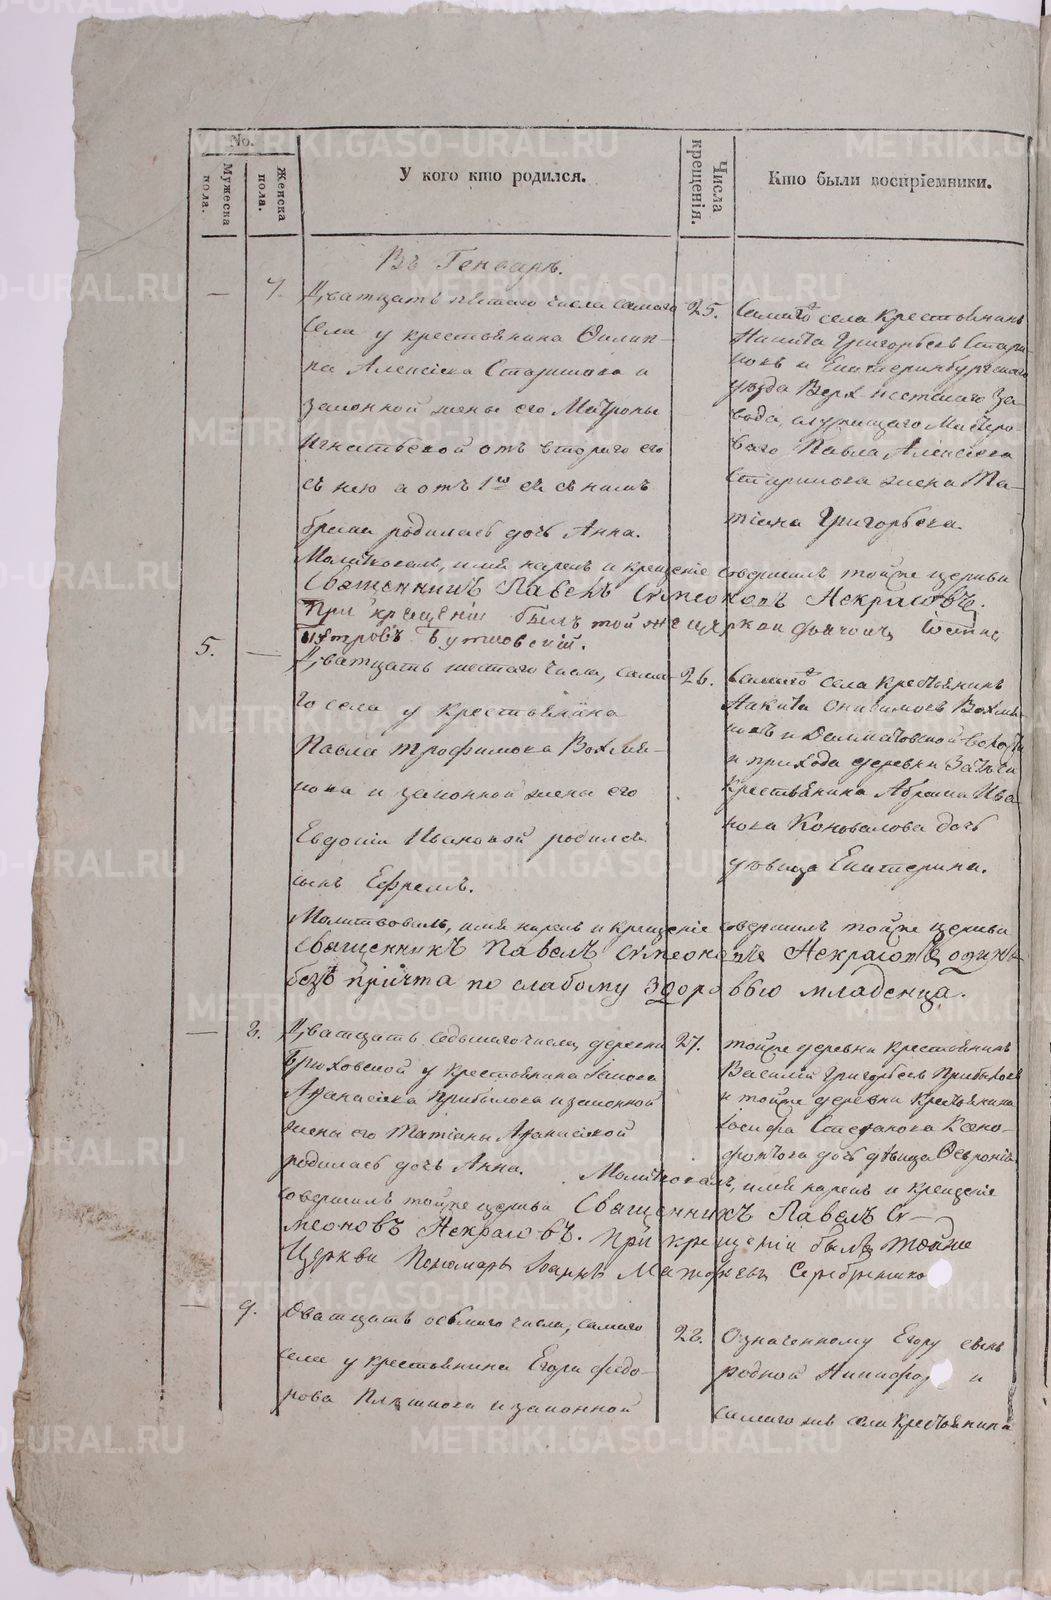 No.
Мужеска пола.
Женска пола.
У кого кто родился.
Числа крещенія.
Кто были воспріемники.
Въ Генварѣ.
— 7.
Дватцать пятаго числа самаго
села у крестьянина Филип-
па Алексѣева Старикова и
законной жены его Матроны
Игнатьевой отъ втораго его
съ нею а отъ 1го ея съ нимъ
брака родилась дочь Анна.
25.
Самаго села Крестьянинъ
Никита Григорьевъ Стари-
ковъ и Екатеринбургскаго
уѣзда Верх-Исетскаго За-
вода, Мастеро-
ваго Павла Алексѣева
Старикова жена Та-
тіана Григорьева.
Молитвовалъ, имя нарекъ и крещеніе совершилъ тойже церкви
Священникъ Павелъ Симеоновъ Некрасовъ.
При крещеніи былъ той же церкви
Петровъ Бутковскій.
5. —
Дватцать шестаго числа, сама-
го села у крестьянина
Павла Трофимова Вохмя-
кова и законной жены его
Евдокіи Ивановой родился
сынъ Ефремъ.
26.
Самаго села Крестьянинъ
Никита Онисимовъ Вохмя-
ковъ и Далматовской волости
и прихода деревни
Крестьянина Абрама Ива-
нова Коновалова дочь
дѣвица Екатерина.
Молитвовалъ, имя нарекъ и крещеніе совершилъ тойже церкви
Священникъ Павелъ Симеоновъ Некрасовъ одинъ
безъ причта по слабому здоровью младенца.
— 8.
Дватцать седьмаго числа, деревни
Брюховской у крестьянина Іакова
Афанасьева Прибылова и законной
жены его Татіаны Афанасьевой
родилась дочь Анна.
27.
тойже деревни крестьянинъ
Василій Григорьевъ Прибыловъ
и тойже деревни Крестьянина
Іосифа Стефанова Ксено-
фонтова дочь дѣвица Февронія.
Молитвовалъ, имя нарекъ и крещеніе
совершилъ тойже церкви Священникъ Павелъ Си-
меоновъ Некрасовъ. При крещеніи былъ тойже
Церкви Пономарь Іоаннъ Матфеевъ Серебрянико
— 9.
Дватцать осьмаго числа, самаго
села у крестьянина Егора Федо-
рова и законной
28.
Означенному Егору сынъ
родной Никифор и
самаго же села Крестьянина
METRIKI.GASO-URAL.RU